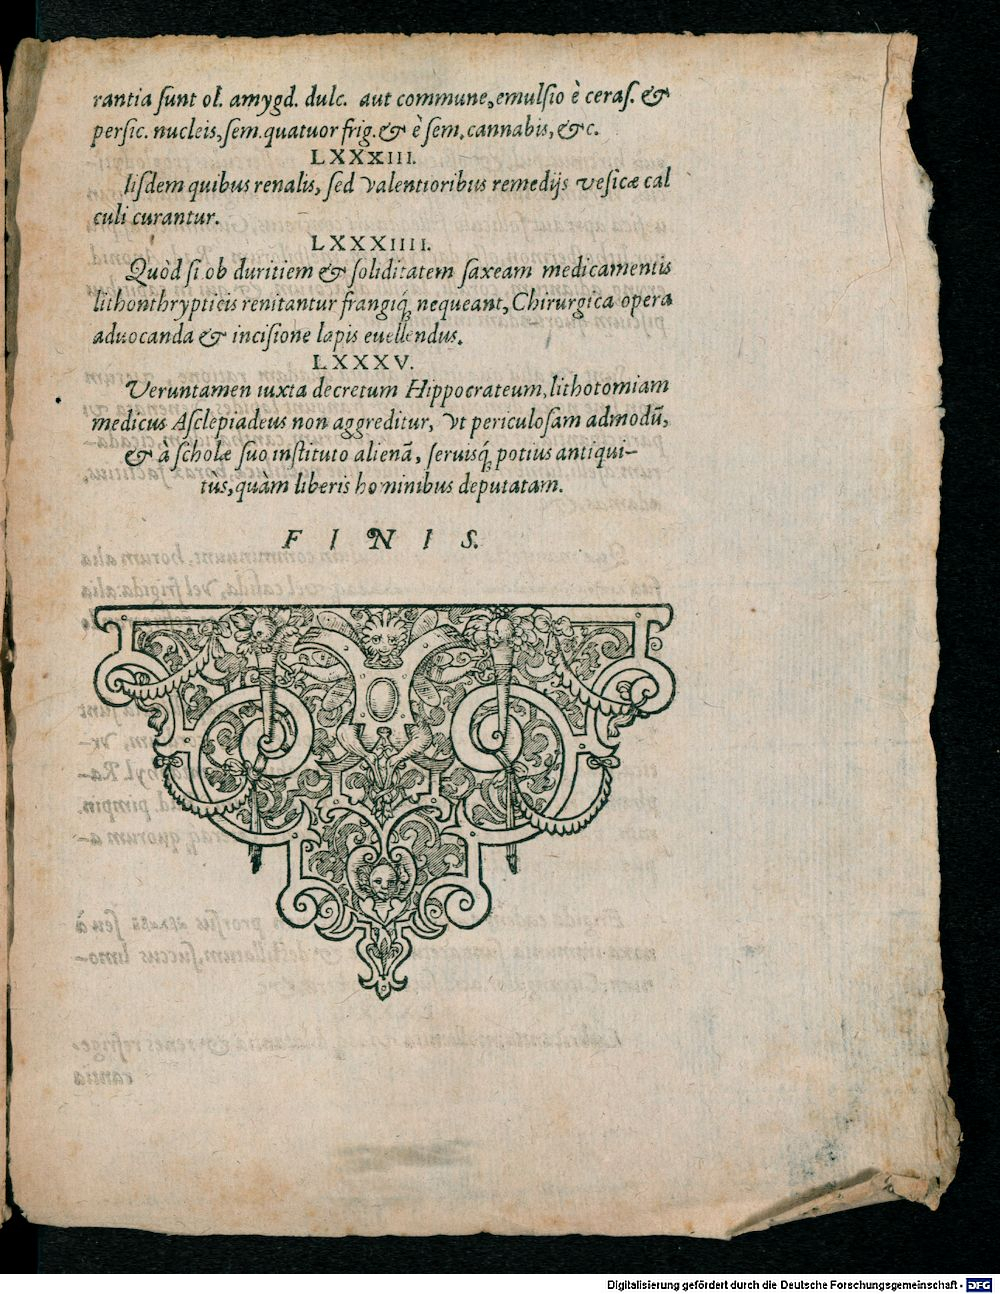 rantia sunt ol. amygd. dulc. aut commune, emulsio è ceras. &
persic. nucleis, sem. quatuor frig. & è sem. cannabis, &c.
LXXXIII.
Iisdem quibus renalis, sed valentioribus remedijs vesicæ cal
culi curantur.
LXXXIIII.
Quòd si ob duritiem & soliditatem saxeam medicamentis
lithonthrypticis renitantur frangiq́; nequeant, Chirurgica opera
aduocanda & incisione lapis euellendus.
LXXXV.
Veruntamen iuxta decretum Hippocrateum, lithotomiam
medicus Asclepiadeus non aggreditur, vt periculosam admodū,
& à scholæ suo instituto alienā, seruisq́; potius antiqui-
tùs, quàm liberis hominibus deputatam.
FINIS.
Digitalisierung gefördert durch die Deutsche Forschungsgemeinschaft - DFG